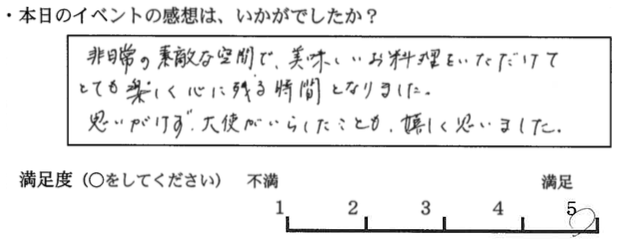 ・本日のイベントの感想は、いかがでしたか？
非日常の素敵な空間で、美味しいお料理をいただけて
とても楽しく心に残る時間となりました。
思いがけず、大使がいらしたことも、嬉しく思いました。
満足度（○をしてください） 不満 満足
1 2 3 4 5